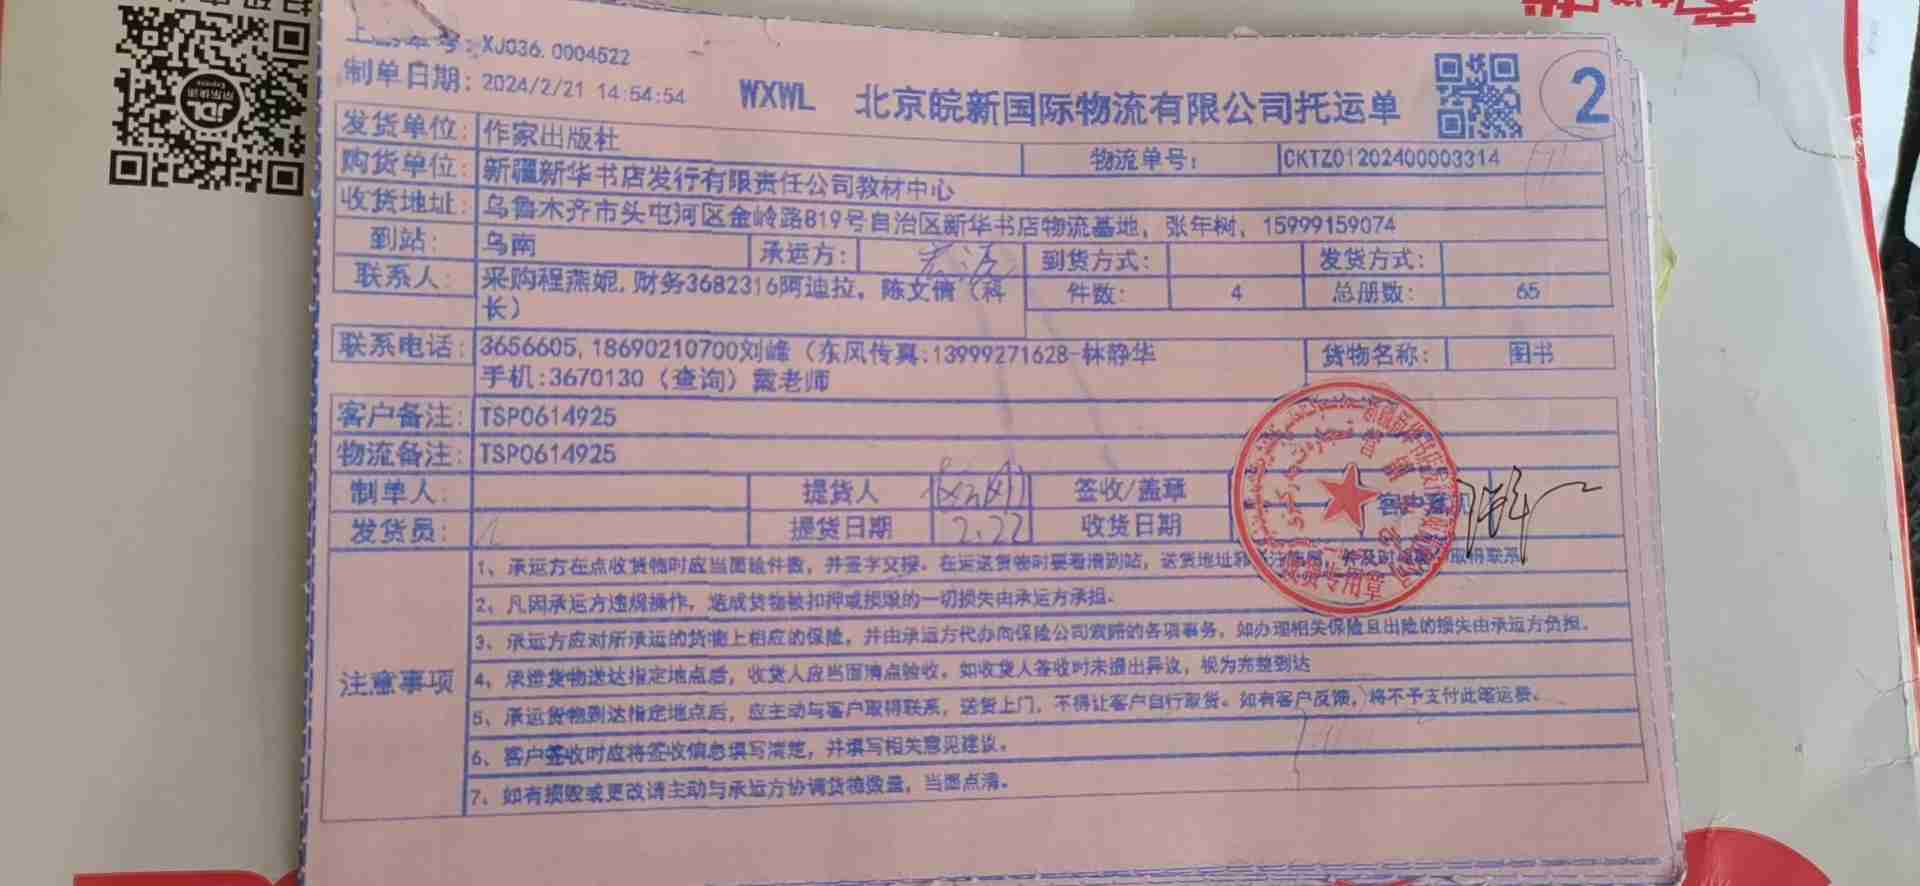 单号: XJ036.0004522
制单日期: 2024/2/21 14:54:54
WXWL 北京皖新国际物流有限公司托运单
2
发货单位: 作家出版社 物流单号: CKTZ01202400003314
购货单位: 新疆新华书店发行有限责任公司教材中心
收货地址: 乌鲁木齐市头屯河区金岭路819号自治区新华书店物流基地, 张年树, 15999159074
到站: 乌南 承运方: 到货方式: 发货方式:
联系人: 采购程燕妮,财务3682316阿迪拉, 陈文倩(科长) 件数: 4 总册数: 65
联系电话: 3656605,18690210700刘峰(东风传真:13999271628-林静华 货物名称: 图书
手机:3670130(查询)戴老师
客户备注: TSP0614925
物流备注: TSP0614925
制单人: 提货人 签收/盖章 客户意见
发货员: 提货日期 2.22 收货日期
注意事项
1、承运方在点收货物时应当面验件数, 并签字交接。在运送货物时要看清到站, 送货地址 取得联系
2、凡因承运方违规操作, 造成货物被扣押或损毁的一切损失由承运方承担。
3、承运方应对所承运的货物上相应的保险, 并由承运方代办向保险公司索赔的各项事务, 如办理相关保险且出险的损失由承运方负担。
4、承运货物送达指定地点后, 收货人应当面清点验收。如收货人签收时未提出异议, 视为完整到达
5、承运货物到达指定地点后, 应主动与客户取得联系, 送货上门, 不得让客户自行取货。如有客户反馈, 将不予支付此趟运费。
6、客户签收时应将签收信息填写清楚, 并填写相关意见建议。
7、如有损毁或更改请主动与承运方协调货物数量, 当面点清。
专用章
JDL
京东快递